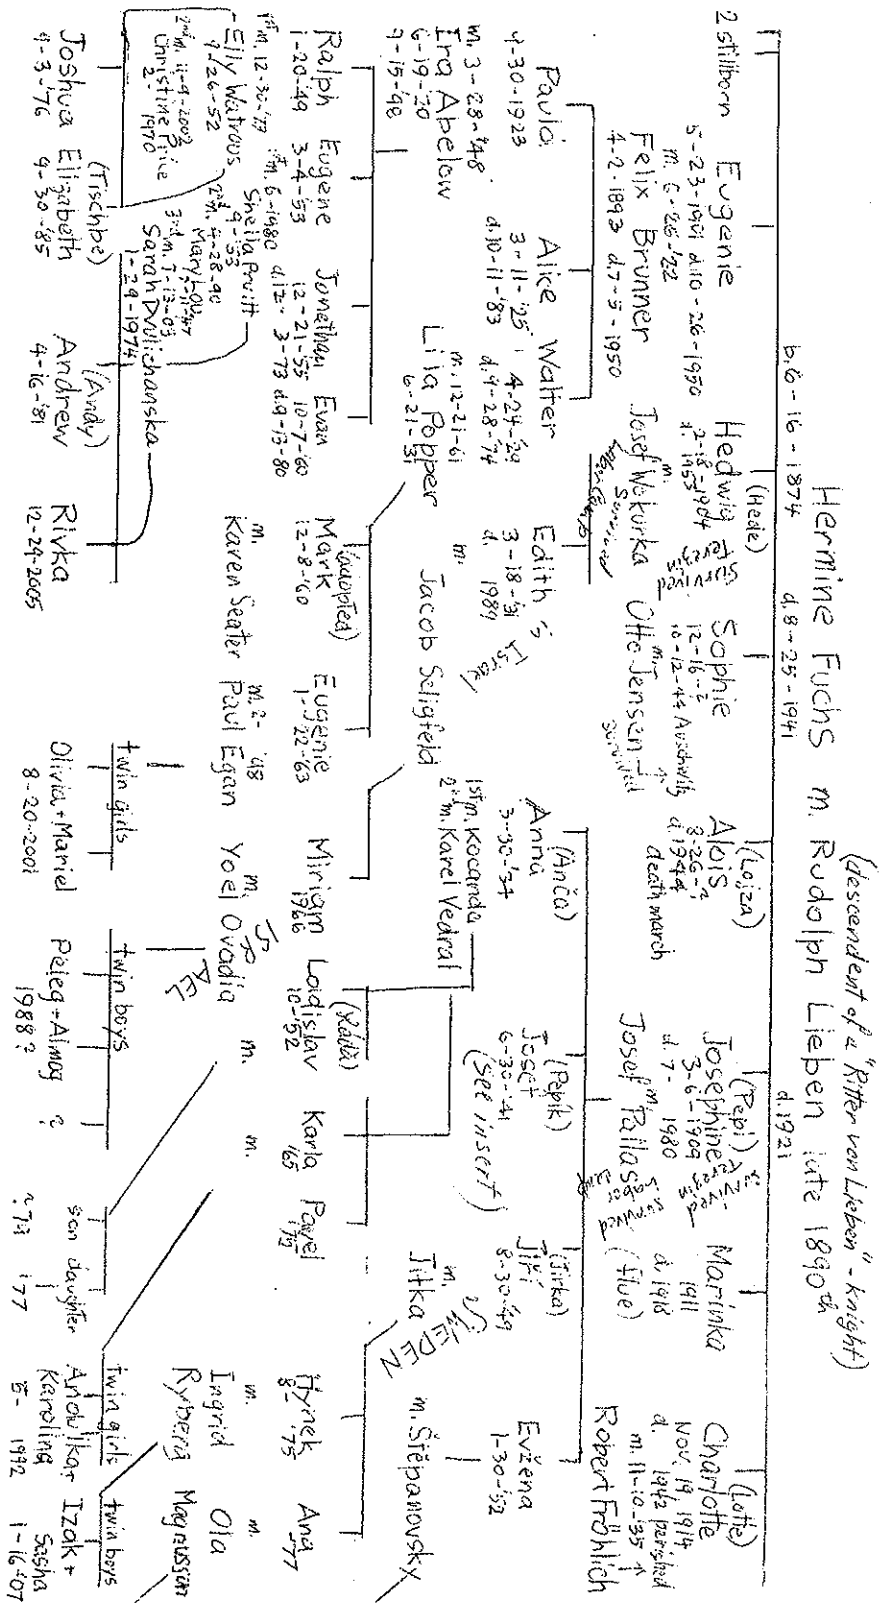 (descendent of a "Ritter von Lieben" - knight)
Hermine Fuchs m. Rudolph Lieben late 1890th
b. 6-16-1874 d. 8-25-1941 d. 1921
2 stillborn
Eugenie
5-23-1901 d. 10-26-1950
m. 6-26-'22
Felix Brunner
4-2-1893 d. 7-5-1950
(Hede)
Hedwig
2-18-1904
d. 1953
survived Terezin
m.
Josef Wokurka
survived
Sophie
12-16-?
10-12-44 Auschwitz
m.
Otto Jensen
survived
(Lojza)
Alois
8-26-?
d. 1944
death march
(Pepi)
Josephine
3-6-1909
d. 7- 1980
survived Terezin
m.
Josef Pallas
survived labor camp
Marinka
1911
d. 1918
(flue)
(Lotte)
Charlotte
Nov. 19, 1914
d. 1942 perished
m. 11-10-'35
Robert Fröhlich
Paula
4-30-1923
m. 3-28-'48
Ira Abelow
6-19-'20
9-15-'98
Alice
3-11-'25
d. 10-11-'83
Walter
4-24-'29
d. 9-28-'94
m. 12-21-61
Lila Popper
6-21-'31
Edith
3-18-'31
d. 1989
Israel
m.
Jacob Seligfeld
(Anča)
Anna
3-30-'37
1st m. Kocanda
2nd m. Karel Vedral
(Pepík)
Josef
6-30-'41
(see insert)
(Jirka)
Jiří
8-30-'49
m.
Jitka
SWEDEN
Evžena
1-30-'52
m. Štěpanovsky
Ralph
1-20-49
1st m. 12-30-'77
Elly Watrous
9-26-52
2nd m. 11-9-2002
Christine Price
2- 1970
Eugene
3-4-'53
1st m. 6-1980
Sheila Pruitt
9- '53
2nd m. 4-28-90
Mary Lou
3rd m. 7-13-03
Sarah Dvlichanska
1-29-1974
Jonathan
12-21-'55
d. 12-3-73
Evan
10-7-'60
d. 9-13-80
(adopted)
Mark
12-8-'60
m.
Karen Seater
Eugenie
1-22-'63
m. 2- '98
Paul Egan
Miriam
1966
m.
Yoel Ovadia
ISRAEL
(Láďa)
Ladislav
10-'52
m.
Karla
'65
m.
Pavel
Hynek
8- '75
m.
Ingrid
Ryberg
Ana
-77
m.
Ola
Magnussun
Joshua
9-3-'76
(Tischbe)
Elizabeth
9-30-'85
(Andy)
Andrew
4-16-'81
Rivka
12-29-2005
twin girls
Olivia + Mariel
8-20-2001
twin boys
Peleg + Almog
1988?
?
son
~73
daughter
'77
twin girls
Andulka +
Karolina
5- 1992
twin boys
Izak +
Sasha
1-16-'07